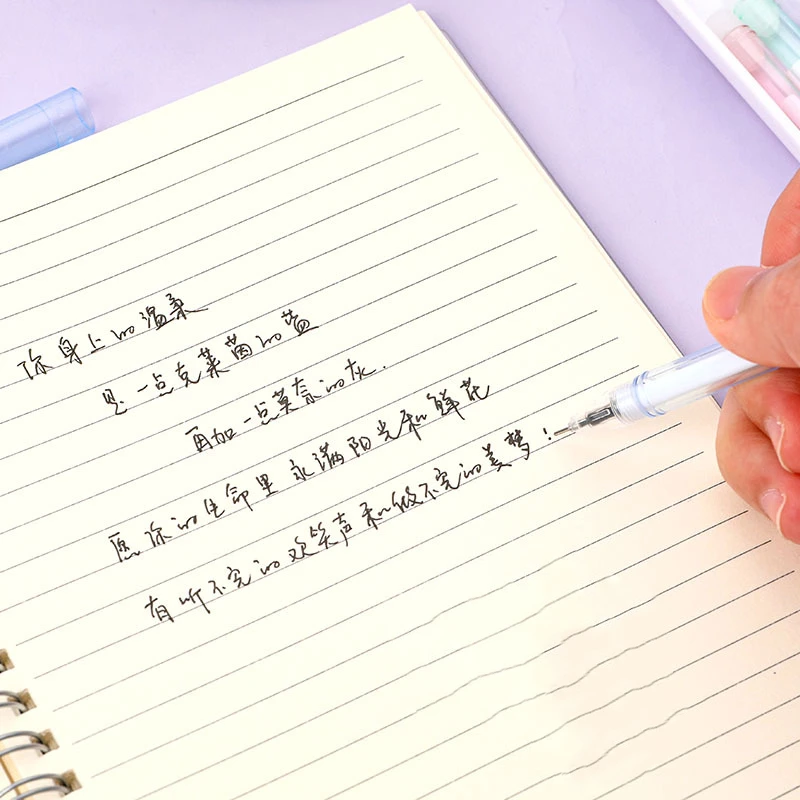 你身上的温柔
是一点克莱茵的蓝
再加一点莫奈的灰.
愿你的生命里永满阳光和鲜花
有听不完的欢笑声和做不完的美梦!